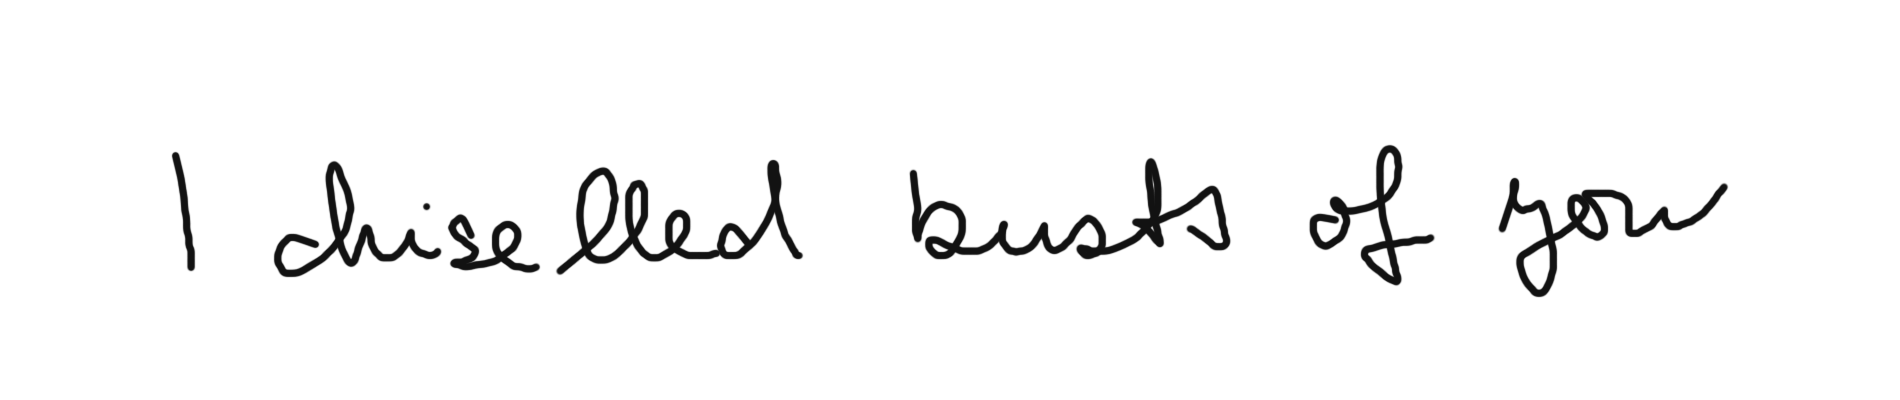 I chiselled busts of you